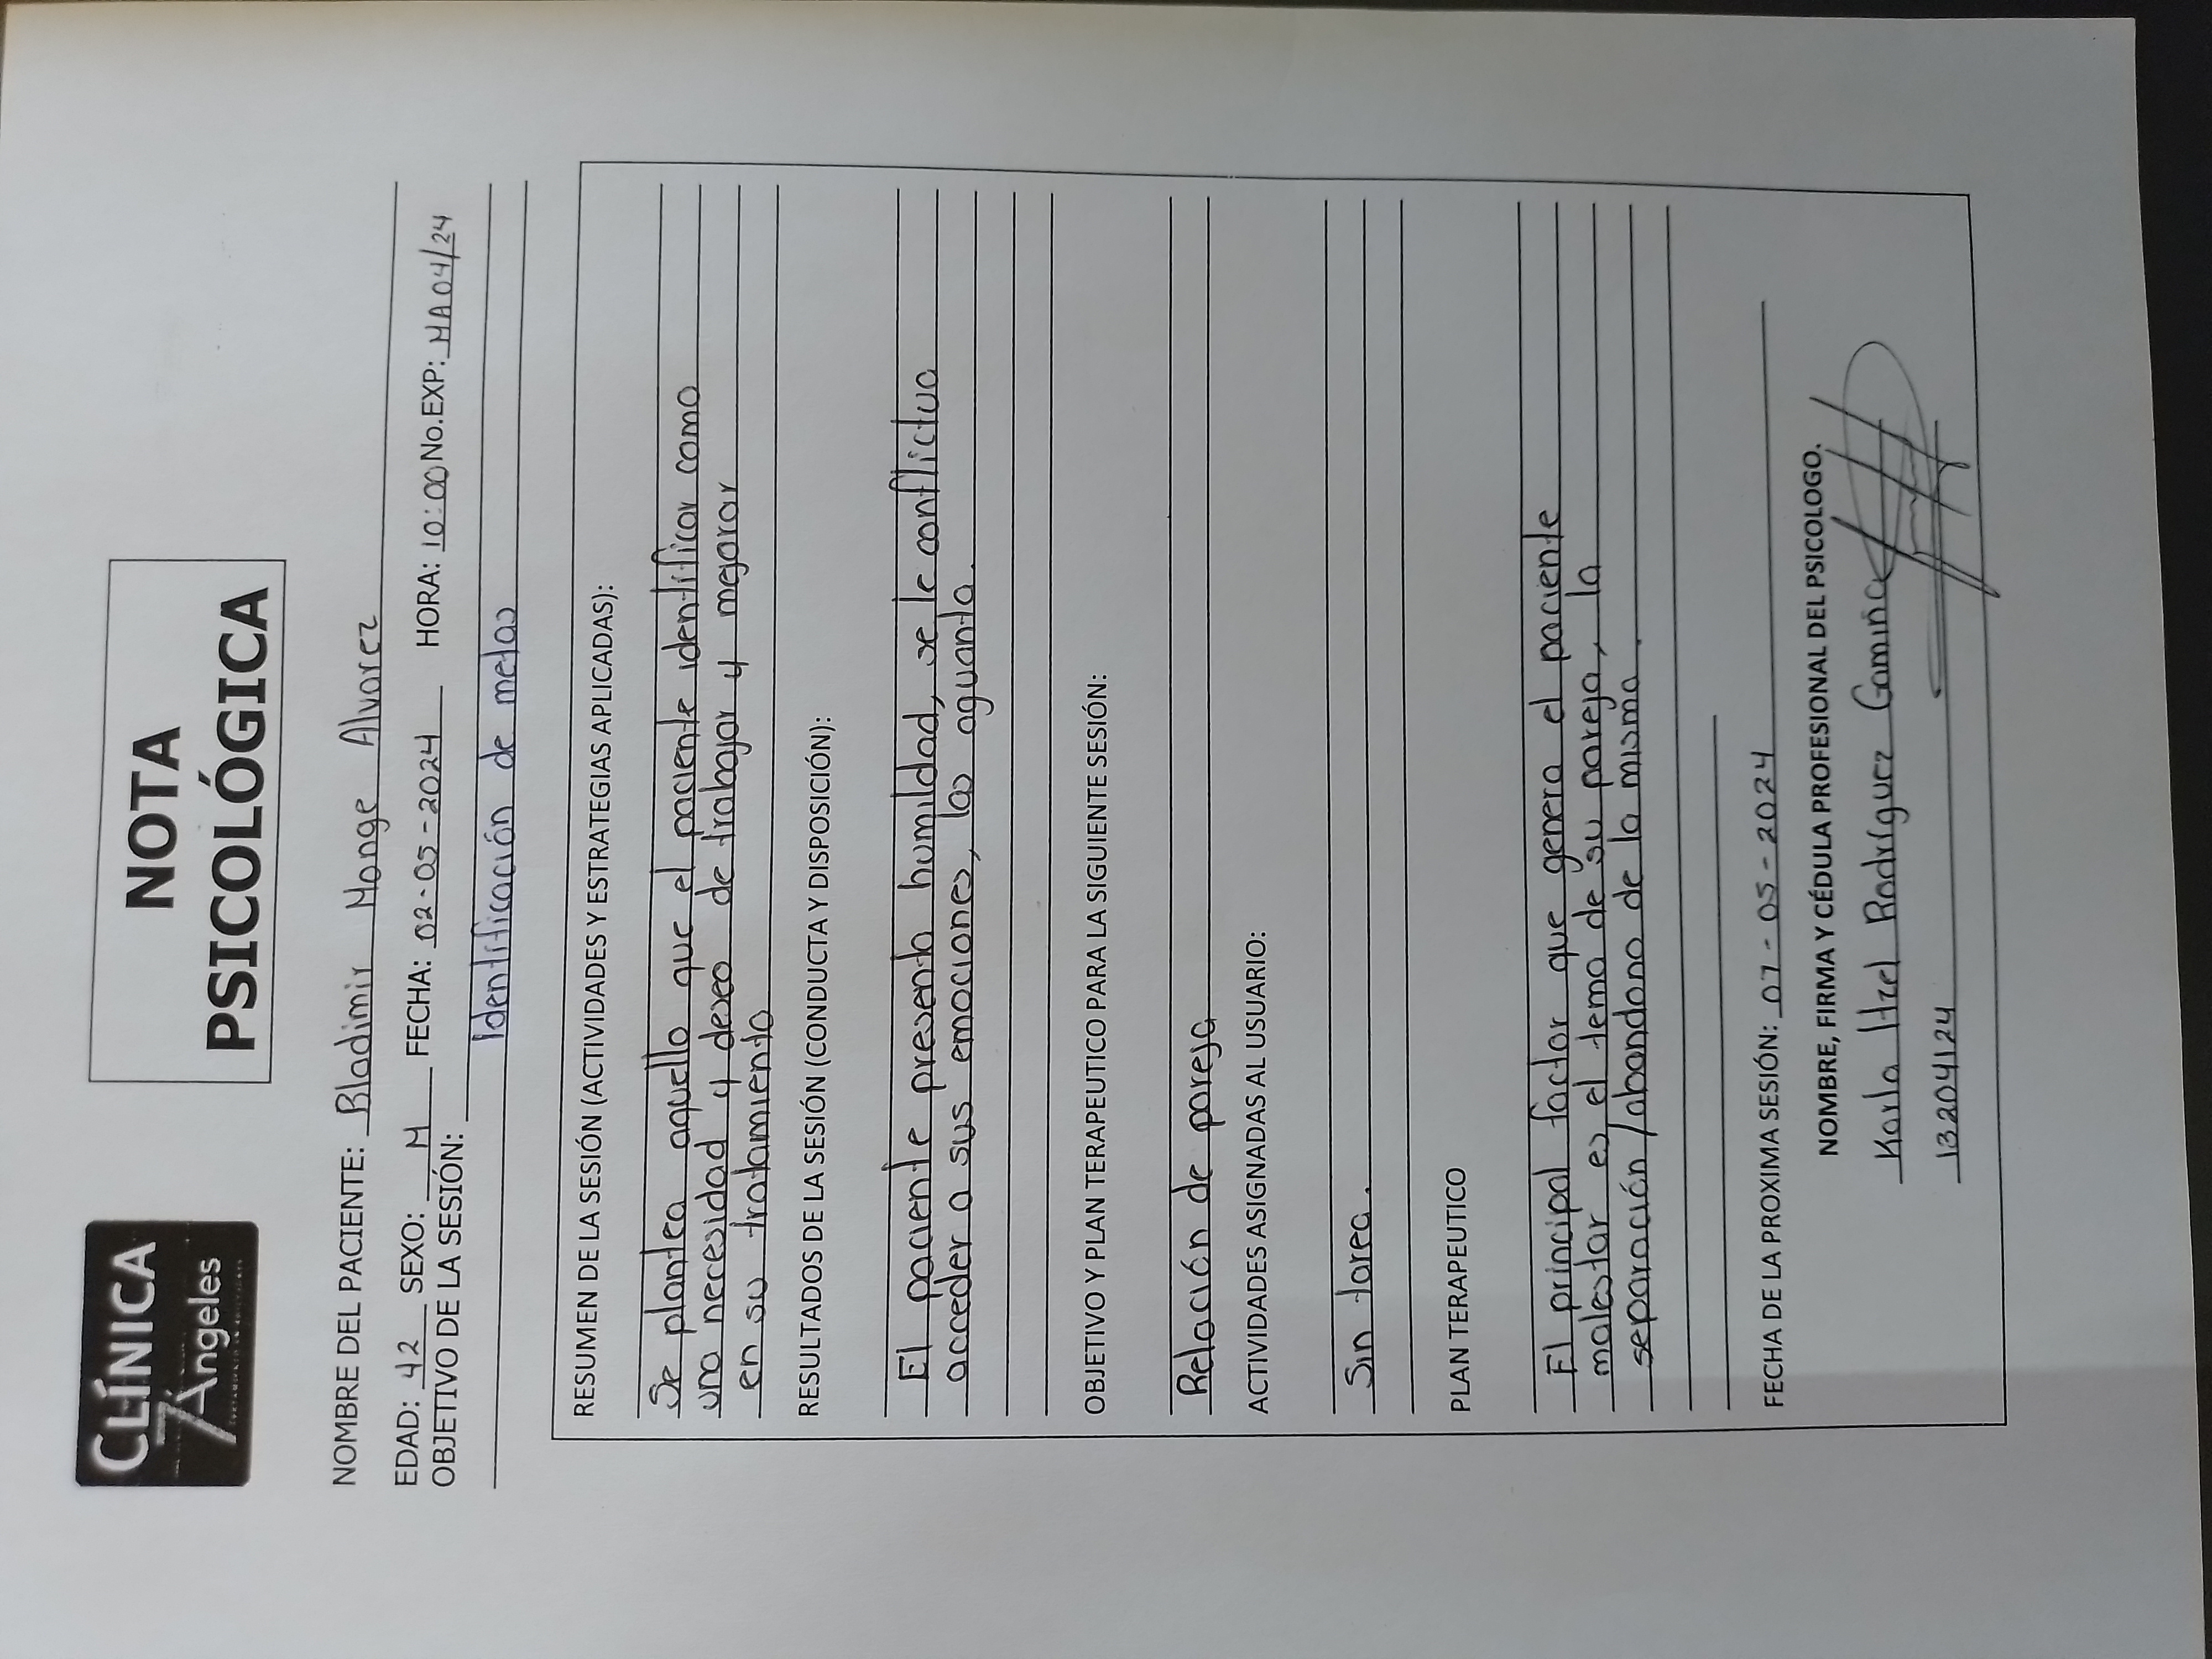 CLÍNICA
7 Ángeles
TRATAMIENTO EN ADICCIONES
NOTA
PSICOLÓGICA
NOMBRE DEL PACIENTE: Bladimir Monge Alvarez
EDAD: 42 SEXO: M FECHA: 02-05-2024 HORA: 10:00 No.EXP: MA04/24
OBJETIVO DE LA SESIÓN:
Identificación de metas
RESUMEN DE LA SESIÓN (ACTIVIDADES Y ESTRATEGIAS APLICADAS):
Se plantea aquello que el paciente identificar como
una necesidad y deseo de trabajar y mejorar
en su tratamiento
RESULTADOS DE LA SESIÓN (CONDUCTA Y DISPOSICIÓN):
El paciente presenta humildad, se le conflictua
acceder a sus emociones, las aguanta.
OBJETIVO Y PLAN TERAPEUTICO PARA LA SIGUIENTE SESIÓN:
Relación de pareja
ACTIVIDADES ASIGNADAS AL USUARIO:
Sin tarea.
PLAN TERAPEUTICO
El principal factor que genera el paciente
malestar es el tema de su pareja, la
separación/abandono de la misma.
FECHA DE LA PROXIMA SESIÓN: 07-05-2024
NOMBRE, FIRMA Y CÉDULA PROFESIONAL DEL PSICOLOGO.
Karla Itzel Rodríguez Gamiña
13204124